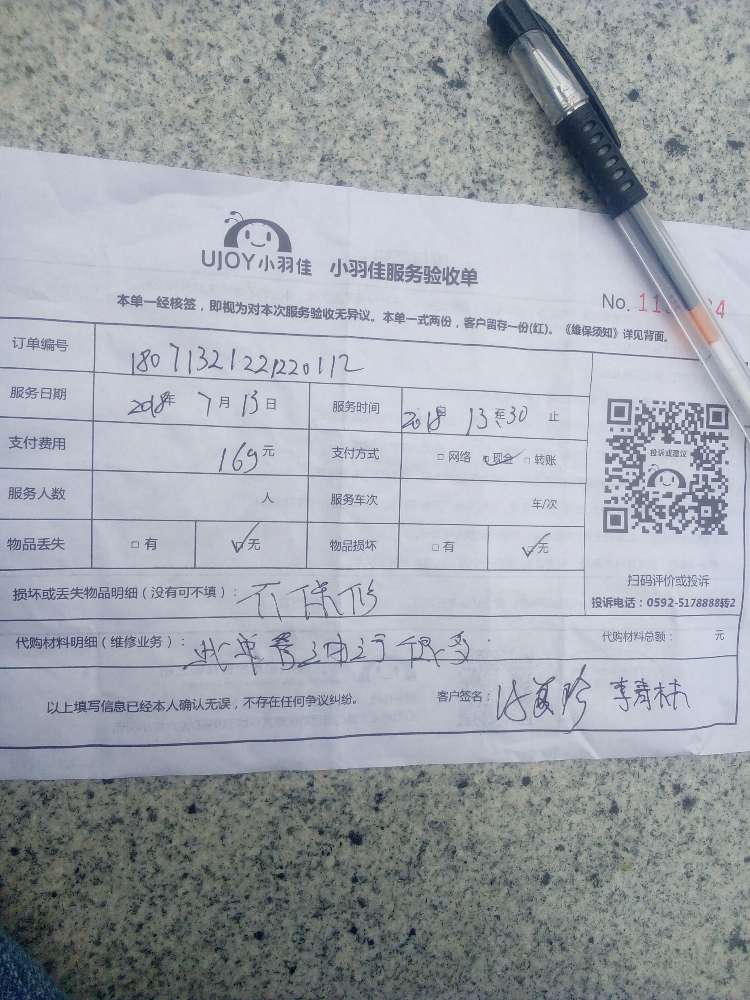 UJOY小羽佳 小羽佳服务验收单
No. 11 4
本单一经核签，即视为对本次服务验收无异议。本单一式两份，客户留存一份(红)。《维保须知》详见背面。
订单编号 180713212212220112
服务日期 2018年 7月13日 服务时间 2018 13 30 止
支付费用 169元 支付方式 □网络 ☑现金 □转账
服务人数 人 服务车次 车/次
物品丢失 □有 ☑无 物品损坏 □有 ☑无
投诉或建议
扫码评价或投诉
投诉电话：0592-5178888转2
损坏或丢失物品明细（没有可不填）： 不保修
代购材料明细（维修业务）： 此单
代购材料总额： 元
以上填写信息已经本人确认无误，不存在任何争议纠纷。 客户签名： 李青林